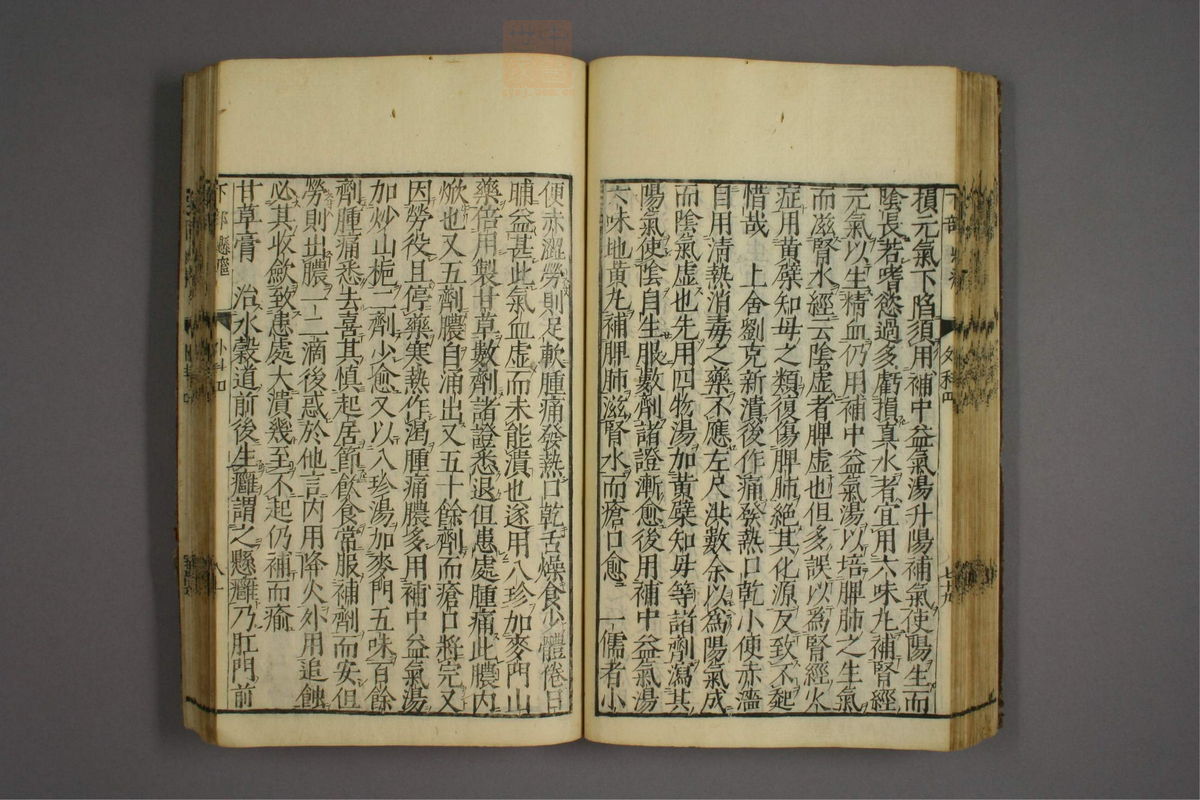 損元氣下陷須用補中益氣湯升陽補氣使陽生而
陰長若嗜慾過多虧損真水者宜用六味丸補腎經
元氣以生精血仍用補中益氣湯以培脾肺之生氣
而滋腎水經云陰虛者脾虛也但多誤以爲腎經火
症用黃蘗知母之類復傷脾肺絕其化源反致不起
惜哉 上舍劉克新潰後作痛發熱口乾小便赤濇
自用清熱消毒之藥不應左尺洪數余以爲陽氣成
而陰氣虛也先用四物湯加黃蘗知母等諸劑瀉其
陽氣使陰自生服數劑諸證漸愈後用補中益氣湯
六味地黃丸補脾肺滋腎水而瘡口愈 一儒者小
便赤澀勞則足軟腫痛發熱口乾舌燥食少體倦日
晡益甚此氣血虛而未能潰也遂用八珍加麥門山
藥倍用製甘草數劑諸證悉退但患處腫痛此膿內
焮也又五劑膿自涌出又五十餘劑而瘡口將完又
因勞役且停藥寒熱作渴腫痛膿多用補中益氣湯
加炒山梔二劑少愈又以八珍湯加麥門五味百餘
劑腫痛悉去喜其慎起居節飲食常服補劑而安但
勞則出膿一二滴後惑於他言內用降火外用追蝕
必其收歛致患處大潰幾至不起仍補而痊
甘草膏 治水穀道前後生癰謂之懸癰乃肛門前
下部 懸癰